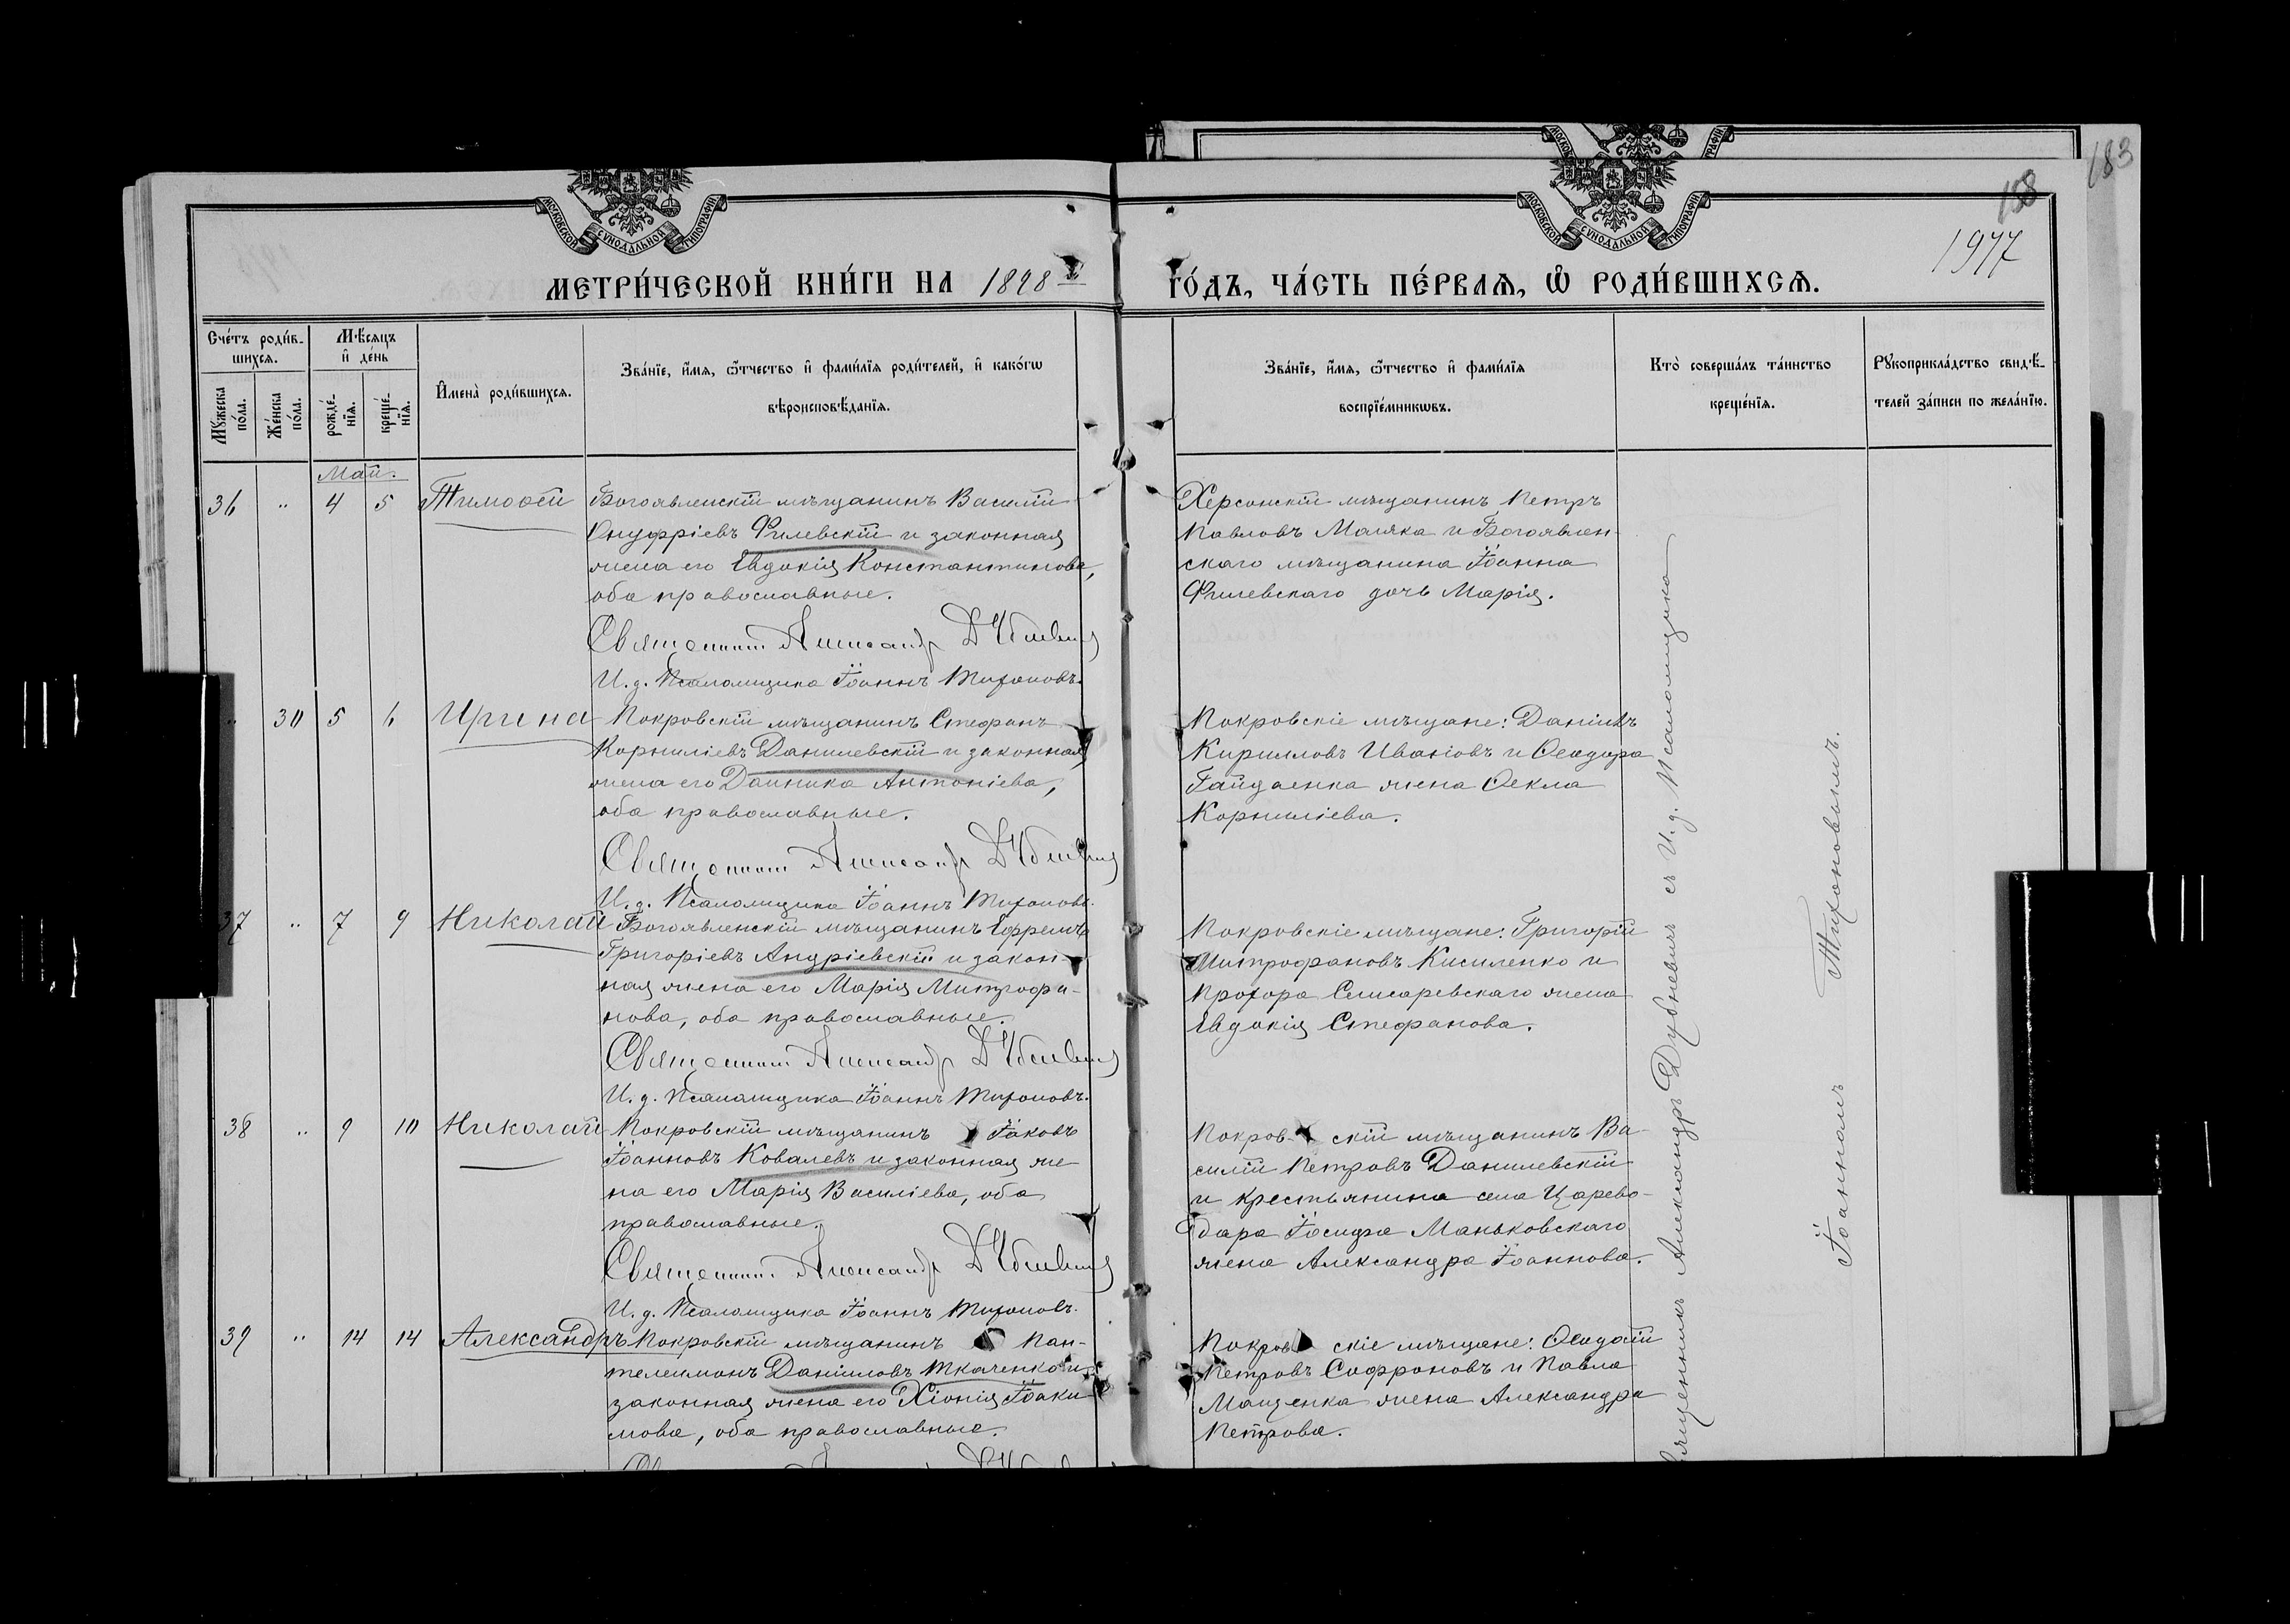 183
158
1977
МОСКОВСКОЙ СѴНОДАЛЬНОЙ ТИПОГРАФІИ
МОСКОВСКОЙ СѴНОДАЛЬНОЙ ТИПОГРАФІИ
МЕТРИ́ЧЕСКОЙ КНИ́ГИ НА 1898 й ГО́ДЪ, ЧА́СТЬ ПЕ́РВАѦ, Ѡ҆ РОДИ́ВШИХСѦ.
Сче́тъ роди́в-
шихсѧ.
Мꙋ́жеска по́ла.
Же́нска по́ла.
Мѣ́сѧцъ
и҆ де́нь
рожде́-
нїѧ.
креще́-
нїѧ.
И҆мена̀ роди́вшихсѧ.
Зва́нїе, и҆́мѧ, ѻ҆́тчество и҆ фами́лїѧ роди́телей, и҆ како́гѡ
вѣроисповѣ́данїѧ.
Зва́нїе, и҆́мѧ, ѻ҆́тчество и҆ фами́лїѧ
воспрїе́мникѡвъ.
Кто̀ соверша́лъ та́инство
креще́нїѧ.
Рꙋкоприкла́дство свидѣ́-
телей за́писи по жела́нїю.
Май.
36 " 4 5 Тимоѳей Богоявленскій мѣщанинъ Василій
Онуфріевъ Филевскій и законная
жена его Евдокія Константинова,
оба православные.
Священник Александр Дубневич
И. д. Псаломщика Іоаннъ Тихоновъ.
Херсонскій мѣщанинъ Петръ
Павловъ Маляка и Богоявлен-
скаго мѣщанина Іоанна
Филевскаго дочь Марія.
" 30 5 6 Ирина Покровскій мѣщанинъ Стефанъ
Корниліевъ Данилевскій и законная
жена его Домника Антоніева,
оба православные.
Священник Александр Дубневич
И. д. Псаломщика Іоаннъ Тихоновъ.
Покровскіе мѣщане: Даніилъ
Кирилловъ Иваніовъ и Ѳеодора
Гайдаенка жена Ѳекла
Корниліева.
37 " 7 9 Николай Богоявленскій мѣщанинъ Ефремъ
Григоріевъ Андріевскій и закон-
ная жена его Марія Митрофа-
нова, оба православные.
Священник Александр Дубневич
И. д. Псаломщика Іоаннъ Тихоновъ.
Покровскіе мѣщане: Григорій
Митрофановъ Кисиленко и
Прохора Слисаревскаго жена
Евдокія Стефанова.
38 " 9 10 Николай Покровскій мѣщанинъ Іаковъ
Іоанновъ Ковалевъ и законная же
на его Марія Василіева, оба
православные.
Священник Александр Дубневич
И. д. Псаломщика Іоаннъ Тихоновъ.
Покров- скій мѣщанинъ Ва-
силій Петровъ Данилевскій
и крестьянина села Царево-
дара Іосифа Маньковскаго
жена Александра Іоаннова.
39 " 14 14 Александръ Покровскій мѣщанинъ Пан-
телеимонъ Даніиловъ Ткаченко и
законная жена его Хіонія Іоаки-
мова, оба православные.
Покров скіе мѣщане: Ѳеодосій
Петровъ Софроновъ и Павла
Мащенка жена Александра
Петрова.
Священникъ Александръ Дубневичъ съ И. д. Псаломщика
Іоанномъ Тихоновымъ.